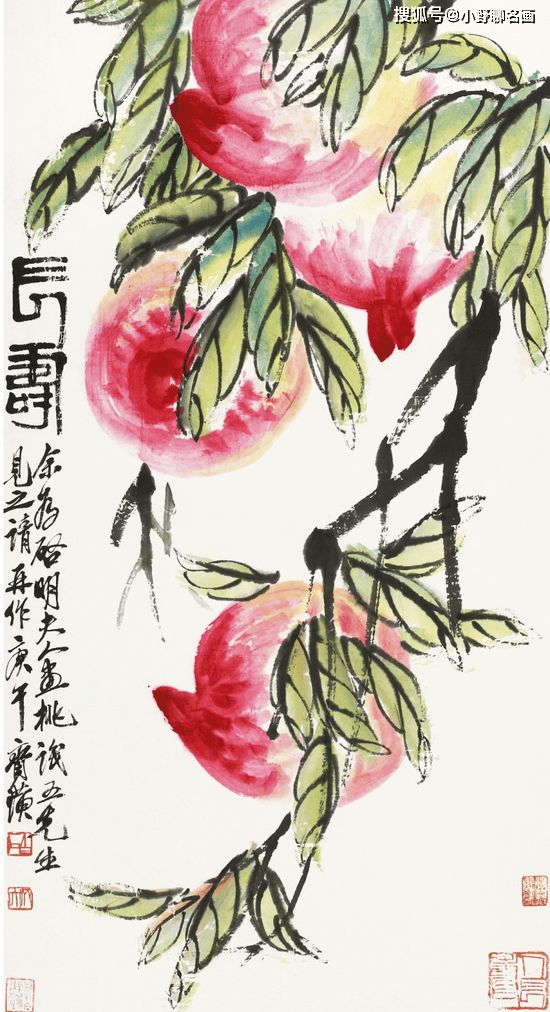 搜狐号@小野聊名画
長壽
余為明夫人畫桃識五先生
見之請再作庚午齊璜